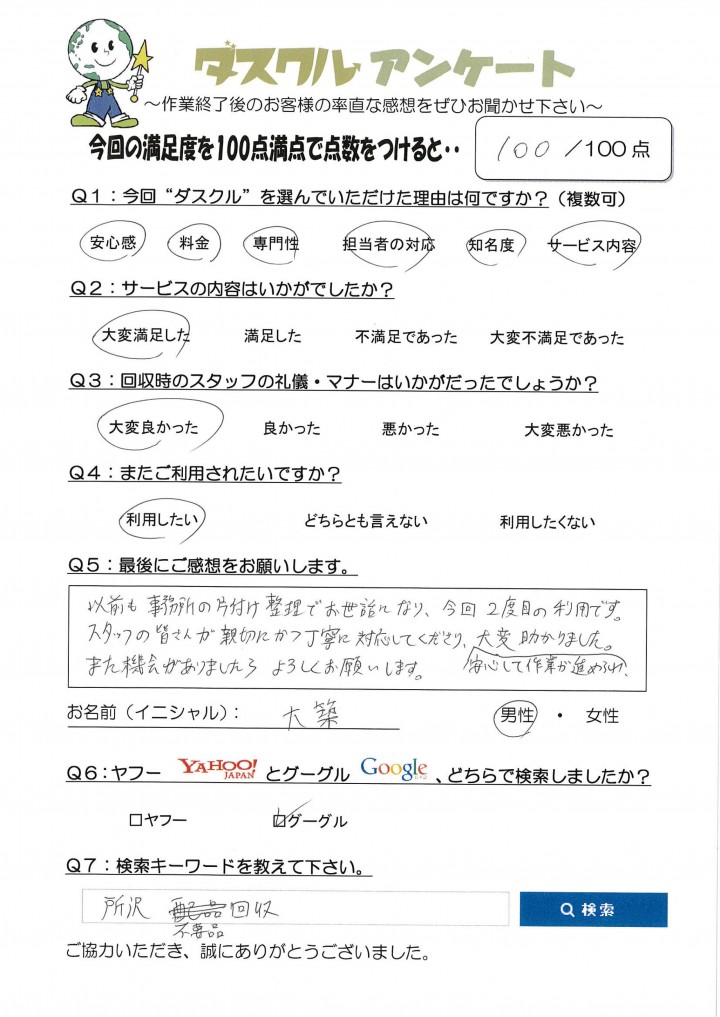 ダスクル アンケート
～作業終了後のお客様の率直な感想をぜひお聞かせ下さい～
今回の満足度を100点満点で点数をつけると‥ 100 /100点
Q1：今回“ダスクル”を選んでいただけた理由は何ですか？（複数可）
安心感 料金 専門性 担当者の対応 知名度 サービス内容
Q2：サービスの内容はいかがでしたか？
大変満足した 満足した 不満足であった 大変不満足であった
Q3：回収時のスタッフの礼儀・マナーはいかがだったでしょうか？
大変良かった 良かった 悪かった 大変悪かった
Q4：またご利用されたいですか？
利用したい どちらとも言えない 利用したくない
Q5：最後にご感想をお願いします。
以前も 事務所の片付け 整理でお世話になり、今回 2度目の利用です。
スタッフの皆さんが 親切にかつ丁寧に対応してくださり、大変 助かりました。
安心して作業が進められ、
また機会がありましたら よろしくお願いします。
お名前（イニシャル）： 大築 男性 ・ 女性
Q6：ヤフー YAHOO! JAPAN とグーグル Google 、どちらで検索しましたか？
□ヤフー □グーグル
Q7：検索キーワードを教えて下さい。
所沢 不要品回収 検索
ご協力いただき、誠にありがとうございました。